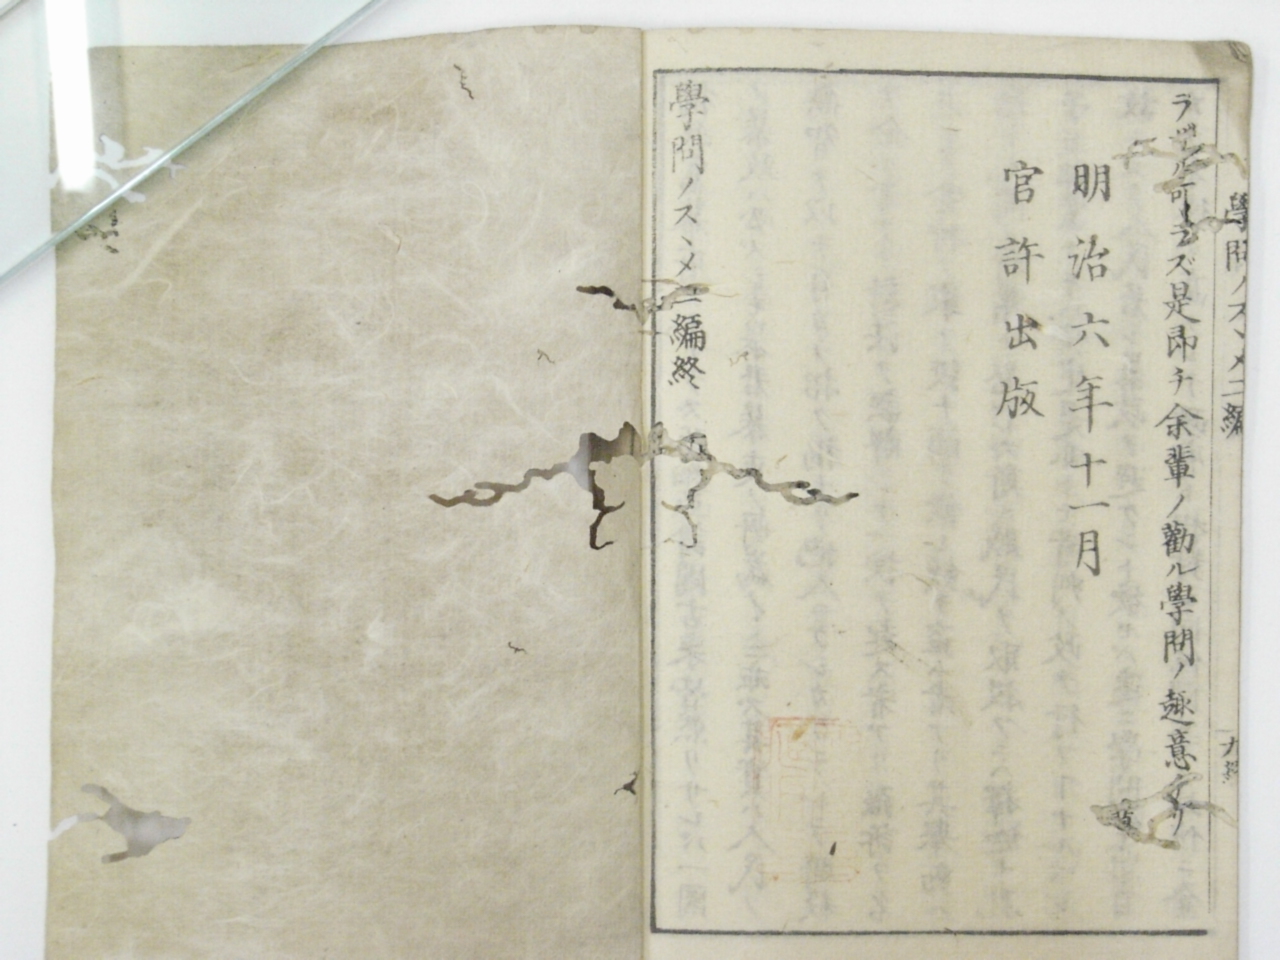 學問ノスヽメ二編
九終
ラザル可ラズ是即チ余輩ノ勸ル學問ノ趣意ナリ
明治六年十一月
官許出版
學問ノスヽメ二編終